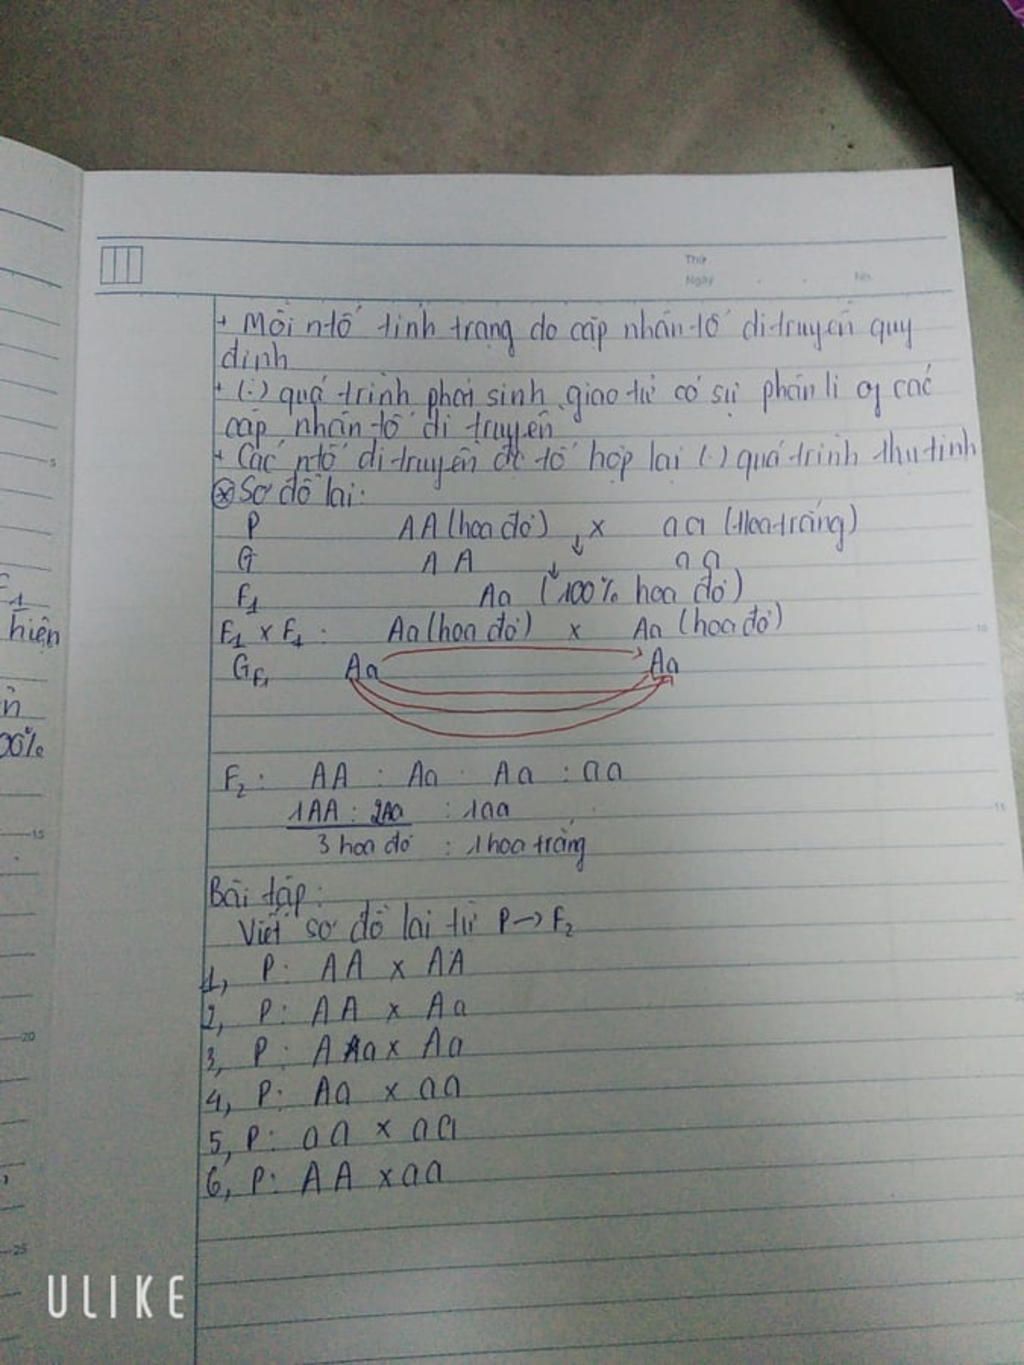 Thứ
Ngày . . No.
+ Mỗi ntố tính trạng do cặp nhân tố di truyền quy
định
+ (.) quá trình phát sinh giao tử có sự phân li of các
cặp nhân tố di truyền
+ Các ntố di truyền đc tổ hợp lại (.) quá trình thụ tinh
⊛ Sơ đồ lai:
P AA (hoa đỏ) x aa (Hoa trắng)
G A A ↓ a a
F1 Aa (100% hoa đỏ)
F1 x F1 : Aa (hoa đỏ) x Aa (hoa đỏ)
GF1 Aa Aa
F2 : AA : Aa : Aa : aa
1AA : 2Aa : 1aa
3 hoa đỏ : 1 hoa trắng
Bài tập:
Viết sơ đồ lai từ P → F2
1, P: AA x AA
2, P: AA x Aa
3, P: Aa x Aa
4, P: Aa x aa
5, P: aa x aa
6, P: AA x aa
F1
hiện
00%
5
10
15
15
20
20
25
ULIKE